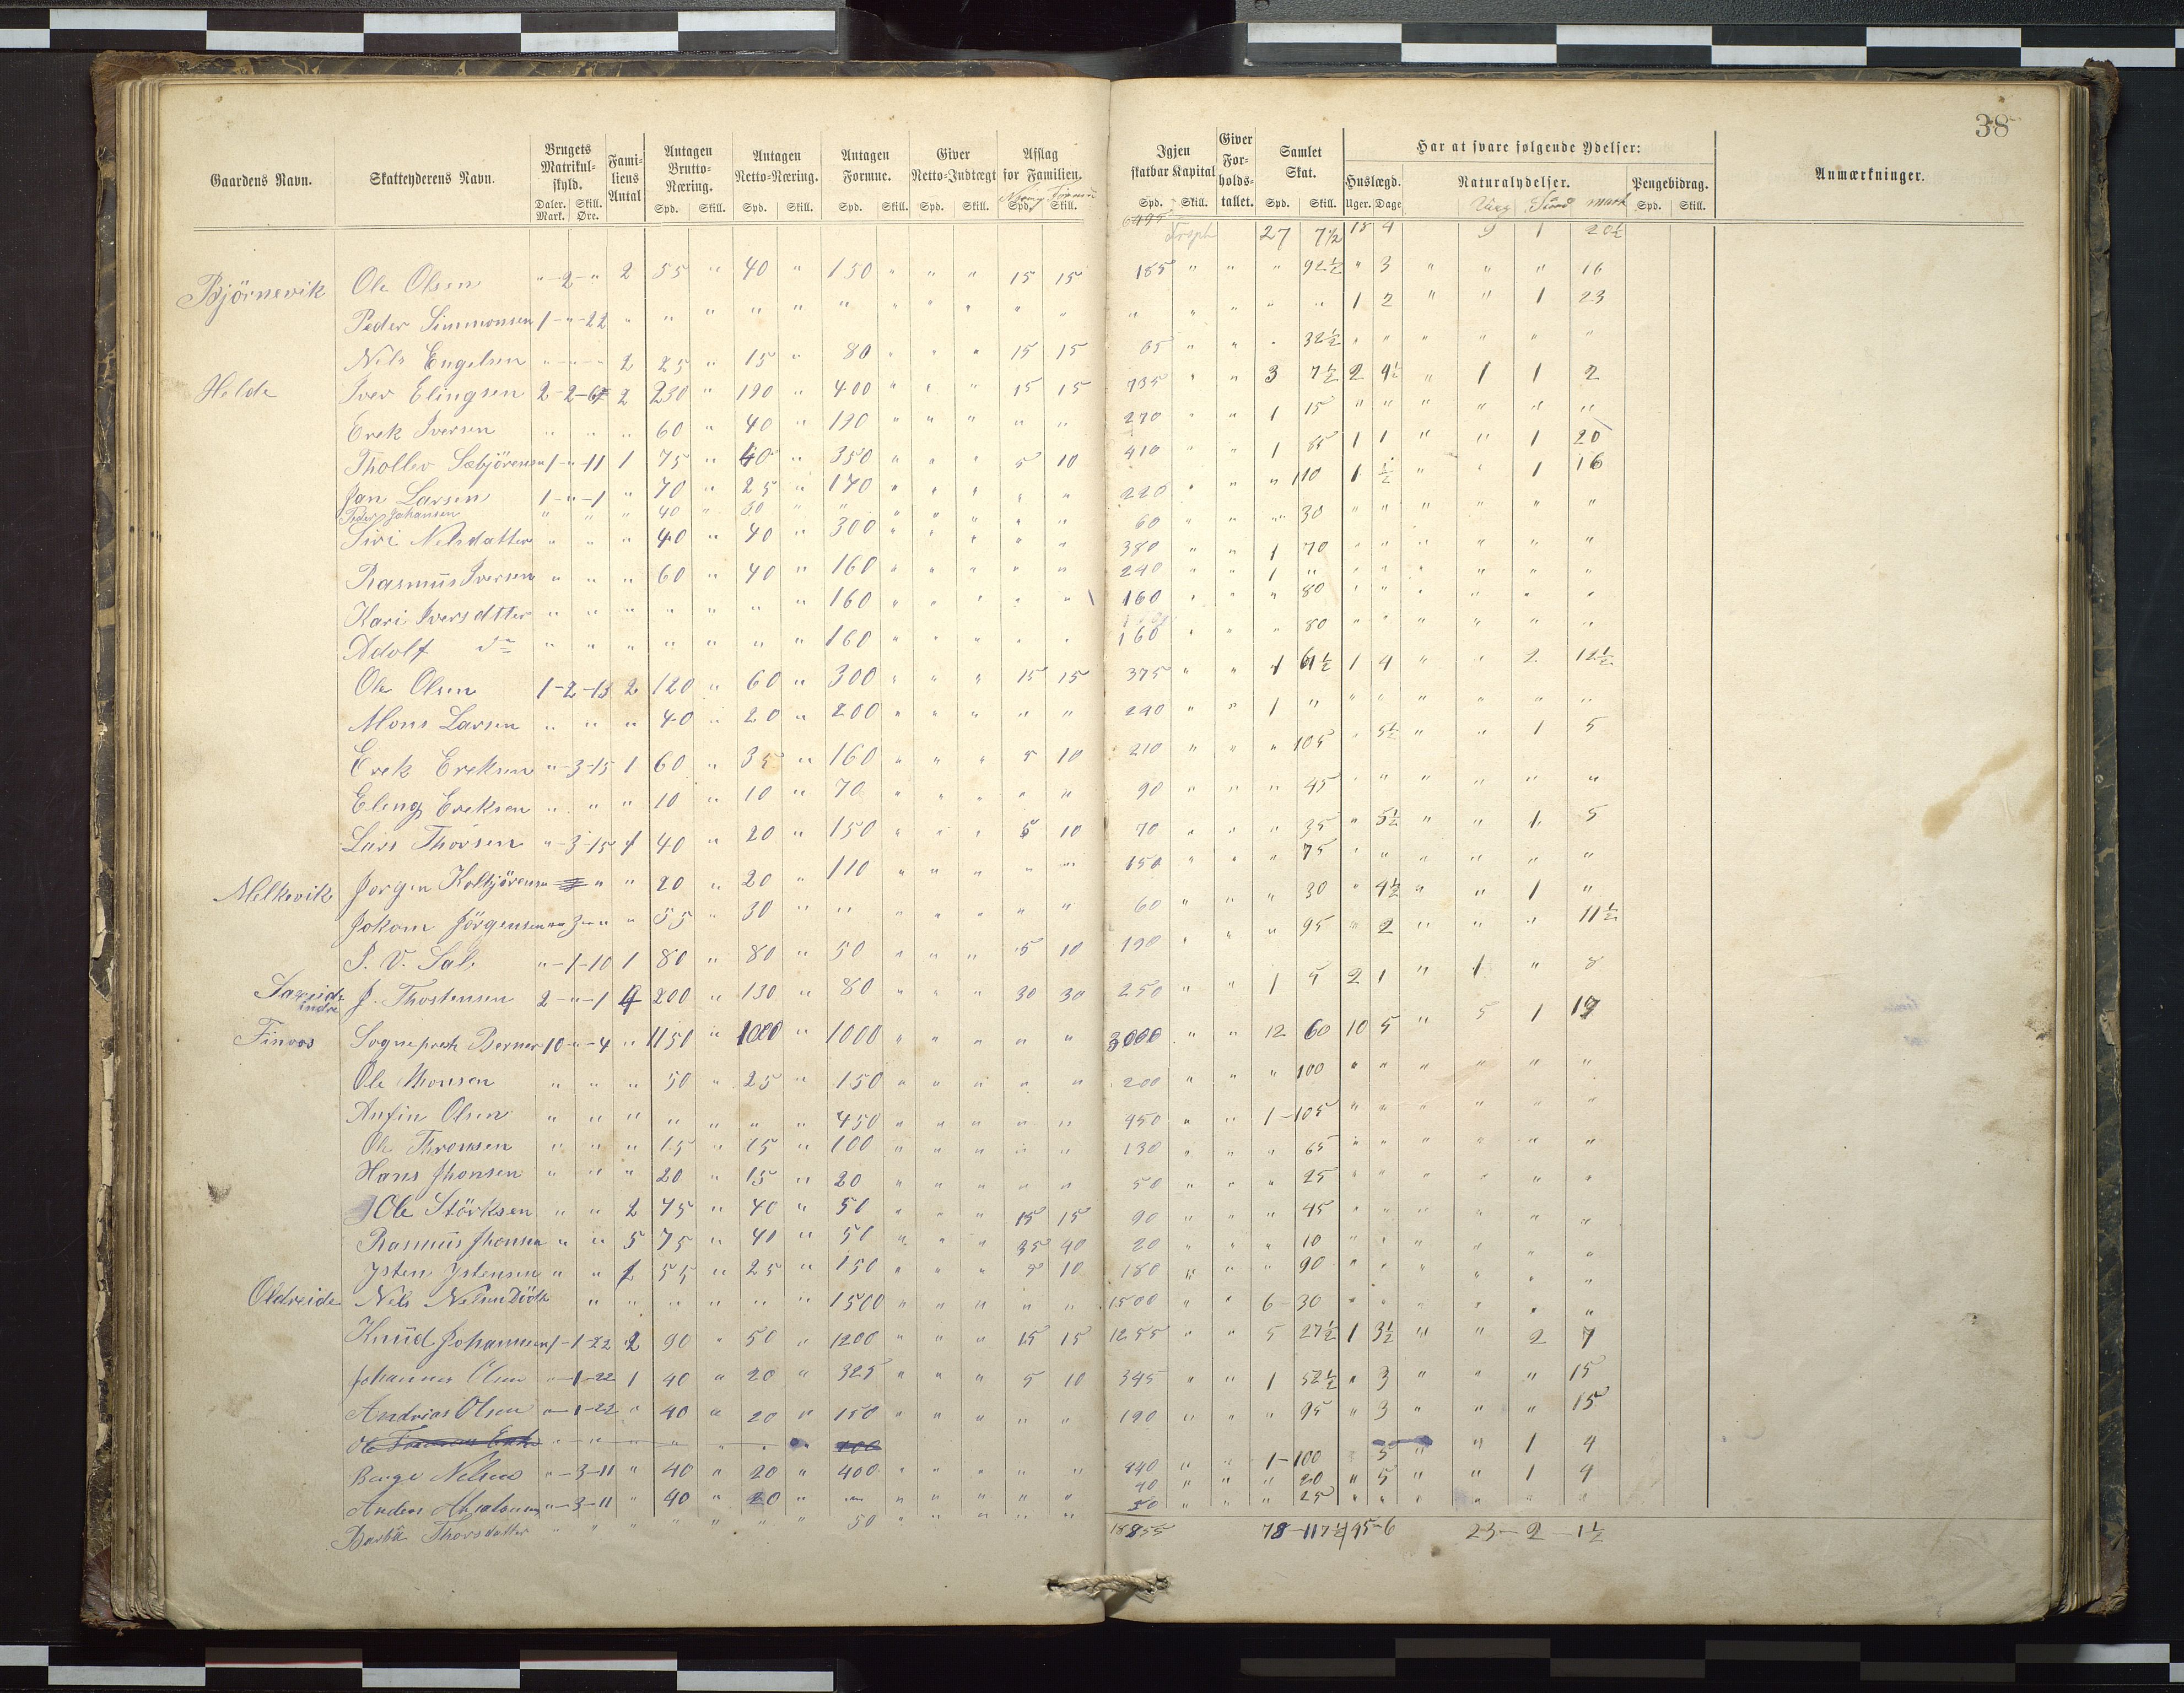 38
Gaardens Navn. Skatteyderens Navn. Brugets Matrikulskyld. Familiens Antal Antagen Brutto-Næring. Antagen Netto-Næring. Antagen Formue. Giver Netto-Indtægt Afslag for Familien. Igjen skatbar Kapital Giver Forholdstallet. Samlet Skat. Har at svare følgende Ydelser: Anmærkninger.
Huslægd. Naturalydelser. Pengebidrag.
Daler. Mark. Skill. Øre. Spd. Skill. Spd. Skill. Spd. Skill. Spd. Skill. Spd. Skill. Spd. Skill. Spd. Skill. Uger. Dage mark Spd. Skill.
6495 Trsph 27 7½ 18 4 9 1 20½
Björnevik Ole Olsen " - 2 - " 2 55 " 40 " 150 " " " 15 15 185 " " " 92½ " 3 " " " 16
Peder Simmonsen 1 - " - 22 " " " " " " " " " " " " " " " " 1 2 " " 1 23
Nils Engelsen " - " - " 2 25 " 15 " 80 " " " 15 15 65 " " " 32½ " " " " " "
Helde Iver Elingsen 2 - 2 - 2 230 " 190 " 400 " " " 15 15 735 " " 3 7½ 2 4½ " 1 1 2
Erek Iversen " " " 60 " 40 " 190 " " " " " 270 " " 1 15 " " " " " "
Thollev Sæbjörensen 1 - " - 11 1 75 " 40 " 350 " " " 5 10 410 " " 1 85 1 1 " " 1 20
Jan Larsen 1 - " - 1 " 70 " 25 " 170 " " " " " 220 " " " 110 1 ½ " " 1 16
Peder Johansen " " " 40 " 30 " " " " " " " 60 " " " 30 " " " " " "
Siri Nelsdatter " " " 40 " 40 " 300 " " " " " 380 " " 1 70 " " " " " "
Rasmus Iversen " " " 60 " 40 " 160 " " " " " 240 " " 1 " " " " " " "
Kari Iversdtter " " " " " " " 160 " " " " " 160 " " " 80 " " " " " "
Adolf do " " " " " " " 160 " " " " " 160 " " " 80 " " " " " "
Ole Olsen 1 - 2 - 13 2 120 " 60 " 300 " " " 15 15 375 " " 1 61½ 1 4 " " 2 12½
Mons Larsen " " " 40 " 20 " 200 " " " " " 240 " " 1 " " " " " " "
Erek Ereksen " - 3 - 15 1 60 " 35 " 160 " " " 5 10 210 " " " 105 " 5½ " " 1 5
Eling Ereksen " " " 10 " 10 " 70 " " " " " 90 " " " 45 " " " " " "
Lars Thorsen " - 3 - 15 1 40 " 20 " 150 " " " 5 10 70 " " " 35 " 5½ " " 1 5
Melkevik Jorgen Kolbjörensen " " 20 " 20 " 110 " " " " " 150 " " " 75 " " " " " "
Jokom Jörgensen " 3 " " 55 " 30 " " " " " " " 60 " " " 30 " 4½ " " 1 "
P. V. Sal. " - 1 - 10 1 80 " 80 " 50 " " " 5 10 190 " " " 95 " 2 " " " 11½
Saxeide indre J. Thostensen 2 - " - 1 4 200 " 130 " 80 " " " 30 30 250 " " 1 5 2 1 " 1 " 8
Finvos Sogneprest Berner 10 - " - 4 " 1150 " 1000 " 1000 " " " " " 3000 " " 12 60 10 5 " 5 1 19
Ole Monsen " " " 50 " 25 " 150 " " " " " 200 " " " 100 " " " " " "
Anfin Olsen " " " " " " " 450 " " " " " 450 " " 1 - 105 " " " " " "
Ole Thronsen " " " 15 " 15 " 100 " " " " " 130 " " " 65 " " " " " "
Hans Jhonsen " " " 20 " 15 " 20 " " " " " 50 " " " 25 " " " " " "
Ole Störksen " " 2 75 " 40 " 50 " " " 15 15 90 " " " 45 " " " " " "
Rasmus Jhonsen " " 5 75 " 40 " 50 " " " 35 40 20 " " " 10 " " " " " "
Ysten Ystensen " " 1 55 " 25 " 150 " " " 5 10 180 " " " 90 " " " " " "
Oldreide Nels Nelsen " " " " " " 1500 " " " " " 1500 " " 6 - 30 " " " " " "
Knud Johannesen 1 - 1 - 22 2 90 " 50 " 1200 " " " 15 15 1255 " " 5 27½ 1 3½ " " 2 7
Johannes Olsen " - 1 - 22 1 40 " 20 " 325 " " " 5 10 345 " " 1 52½ " 3 " " " 15
Andreas Olsen " - 1 - 22 " 40 " 20 " 150 " " " " " 190 " " " 95 " 3 " " " 15
Ole
Børge Nelsen " - 3 - 11 " 40 " 20 " 400 " " " " " 440 " " 1 - 100 5 " " 1 4
Anders " - 3 - 11 " 40 " 20 " " " " " " " 40 " " " 20 " 5 " " 1 4
Thorsdatter " " " " " " " 50 " " " " " 50 " " " 25 " " " " " "
18855 78 - 117½ 45 - 6 23 - 2 - 1½